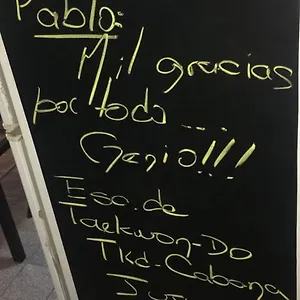 Pablo:
Mil gracias
por todo ....
Genio!!!
Esc. de
Taekwon-Do
Tkd-Cabana